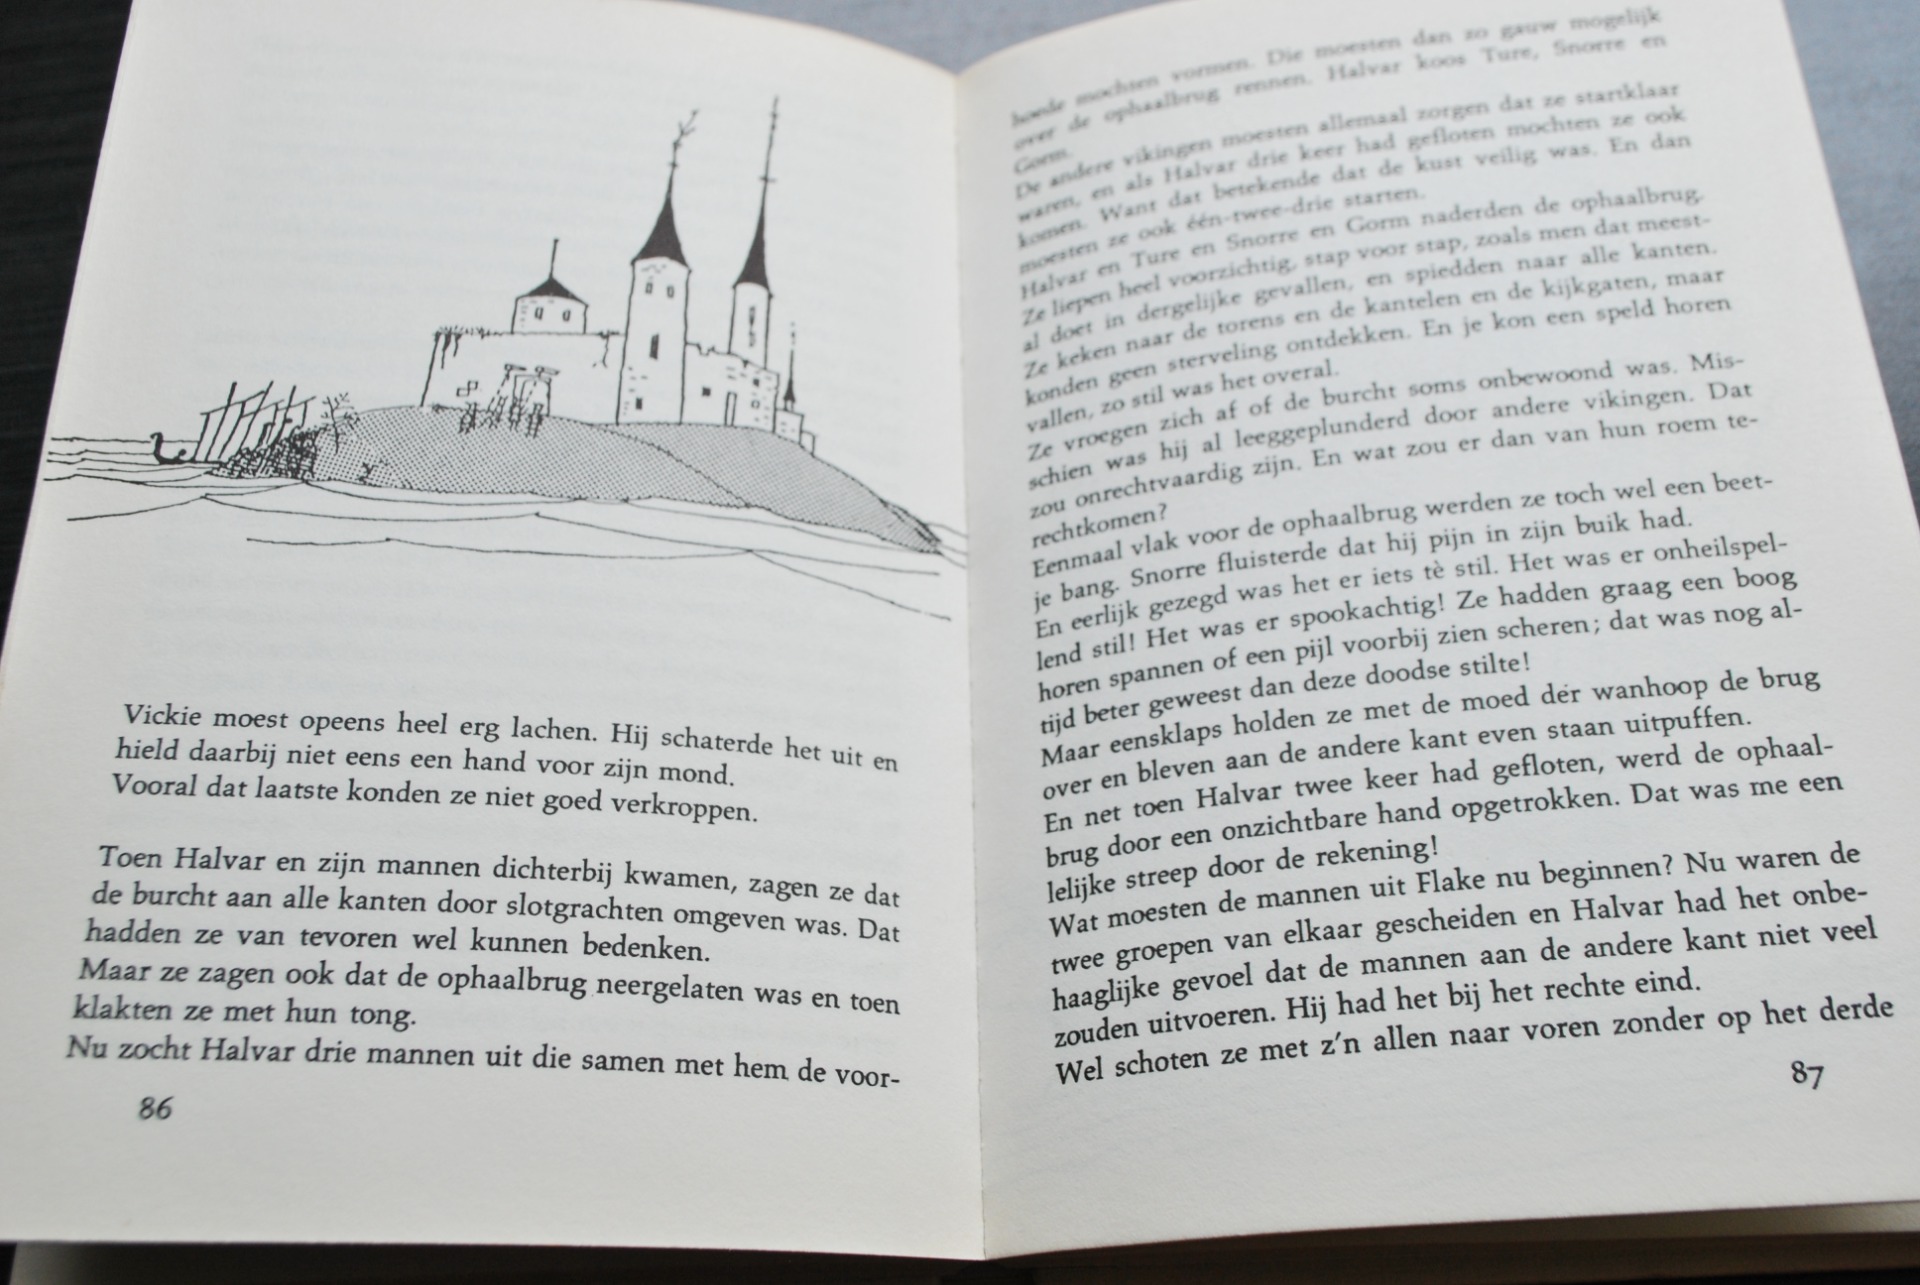 Vickie moest opeens heel erg lachen. Hij schaterde het uit en
hield daarbij niet eens een hand voor zijn mond.
Vooral dat laatste konden ze niet goed verkroppen.
Toen Halvar en zijn mannen dichterbij kwamen, zagen ze dat
de burcht aan alle kanten door slotgrachten omgeven was. Dat
hadden ze van tevoren wel kunnen bedenken.
Maar ze zagen ook dat de ophaalbrug neergelaten was en toen
klakten ze met hun tong.
Nu zocht Halvar drie mannen uit die samen met hem de voor-
86
hoede mochten vormen. Die moesten dan zo gauw mogelijk
over de ophaalbrug rennen. Halvar koos Ture, Snorre en
Gorm.
De andere vikingen moesten allemaal zorgen dat ze startklaar
waren, en als Halvar drie keer had gefloten mochten ze ook
komen. Want dat betekende dat de kust veilig was. En dan
moesten ze ook één-twee-drie starten.
Halvar en Ture en Snorre en Gorm naderden de ophaalbrug.
Ze liepen heel voorzichtig, stap voor stap, zoals men dat meest-
al doet in dergelijke gevallen, en spiedden naar alle kanten.
Ze keken naar de torens en de kantelen en de kijkgaten, maar
konden geen sterveling ontdekken. En je kon een speld horen
vallen, zo stil was het overal.
Ze vroegen zich af of de burcht soms onbewoond was. Mis-
schien was hij al leeggeplunderd door andere vikingen. Dat
zou onrechtvaardig zijn. En wat zou er dan van hun roem te-
rechtkomen?
Eenmaal vlak voor de ophaalbrug werden ze toch wel een beet-
je bang. Snorre fluisterde dat hij pijn in zijn buik had.
En eerlijk gezegd was het er iets tè stil. Het was er onheilspel-
lend stil! Het was er spookachtig! Ze hadden graag een boog
horen spannen of een pijl voorbij zien scheren; dat was nog al-
tijd beter geweest dan deze doodse stilte!
Maar eensklaps holden ze met de moed der wanhoop de brug
over en bleven aan de andere kant even staan uitpuffen.
En net toen Halvar twee keer had gefloten, werd de ophaal-
brug door een onzichtbare hand opgetrokken. Dat was me een
lelijke streep door de rekening!
Wat moesten de mannen uit Flake nu beginnen? Nu waren de
twee groepen van elkaar gescheiden en Halvar had het onbe-
haaglijke gevoel dat de mannen aan de andere kant niet veel
zouden uitvoeren. Hij had het bij het rechte eind.
Wel schoten ze met z'n allen naar voren zonder op het derde
87